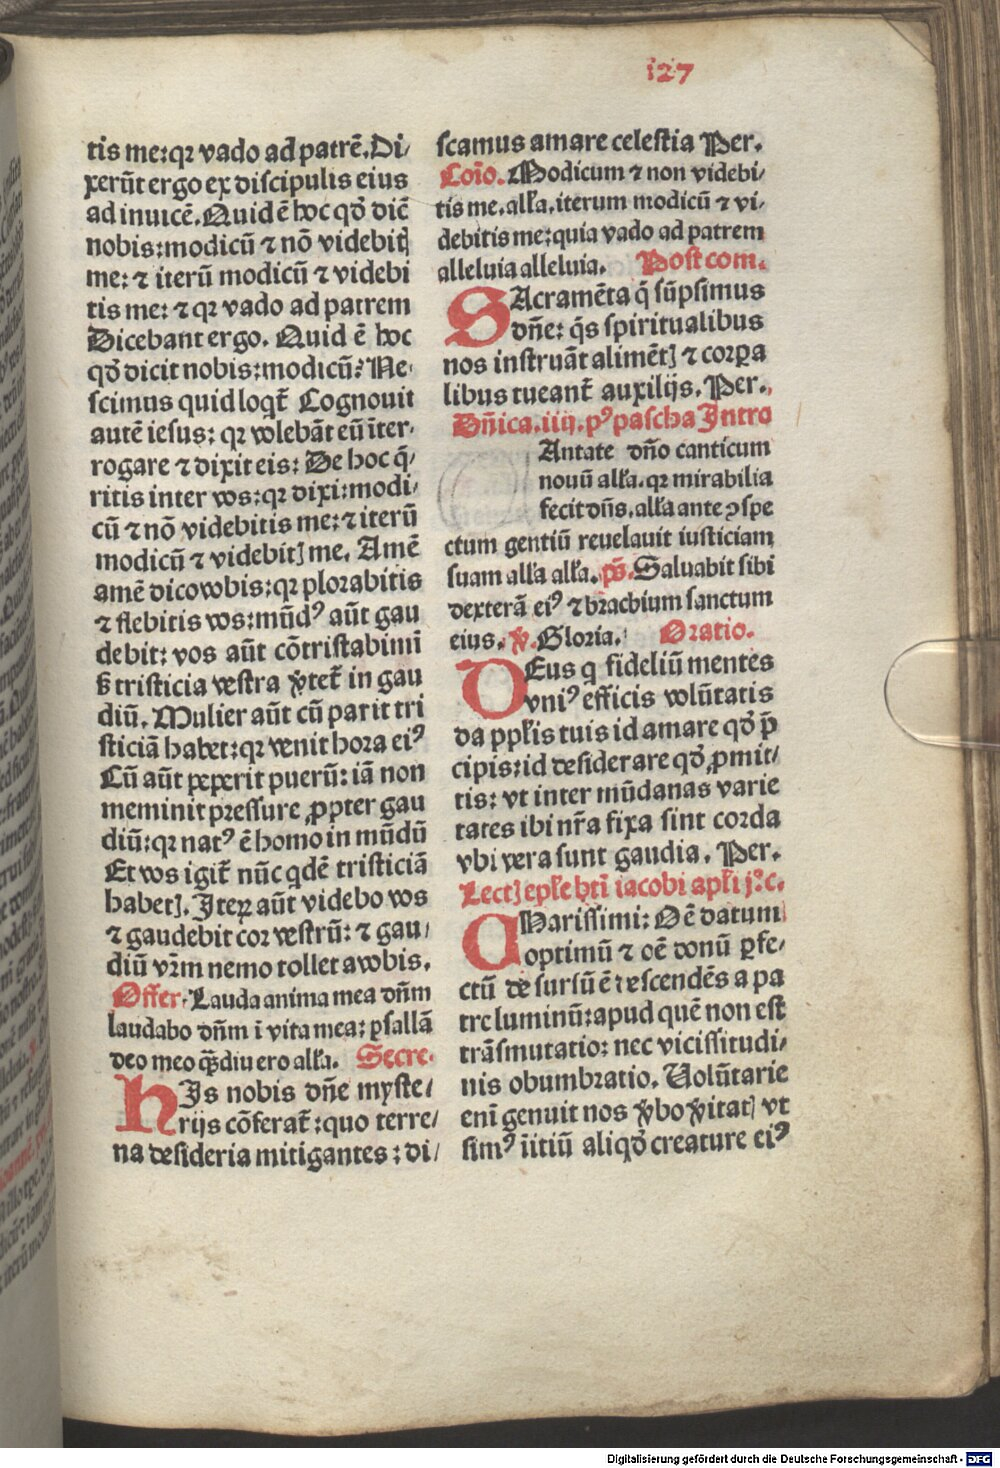 127
tis me: qꝛ vado ad patrē. Di/
xerūt ergo ex discipulis eius
ad inuicē. Quid ē hoc qđ dic̄
nobis: modicū ⁊ nō videbitꝭ
me: ⁊ iterū modicū ⁊ videbi
tis me: ⁊ qꝛ vado ad patrem
Dicebant ergo. Quid ē hoc
qđ dicit nobis: modicū? Ne/
scimus quid loqt̄ Cognouit
autē iesus: qꝛ volebāt eū īter/
rogare ⁊ dixit eis: De hoc q̄/
ritis inter vos: qꝛ dixi: modi/
cū ⁊ nō videbitis me: ⁊ iterū
modicū ⁊ videbitꝭ me. Amē
amē dico vobis: qꝛ plorabitis
⁊ flebitis vos: mūdꝰ aūt gau
debit: vos aūt cōtristabimī
ß tristicia vestra v̄tet̄ in gau
diū. Mulier aūt cū parit tri
sticiā habet: qꝛ venit hora eiꝰ
Cū aūt pepererit puerū: iā non
meminit pressure ꝓpter gau
diū: qꝛ natꝰ ē homo in mūdū
Et vos igit̄ nūc qdē tristiciā
habetꝭ. Iteꝝ aūt videbo vos
⁊ gaudebit cor vestrū: ⁊ gau/
diū vr̄m nemo tollet a vobis.
Offer. Lauda anima mea dn̄m
laudabo dn̄m ī vita mea: psallā
deo meo qᷓꝫdiu ero alła. Secre.
HIs nobis dn̄e myste/
rijs cōferat̄: quo terre/
na desideria mitigantes: di/
scamus amare celestia Per.
Coīo. Modicum ⁊ non videbi/
tis me. alła. iterum modicū ⁊ vi/
debitis me: quia vado ad patrem
alleluia alleluia. Post com.
SAcramēta q̄ sūpsimus
dn̄e: q̄s spiritualibus
nos instruāt alimētꝭ ⁊ corpa
libus tueant̄ auxilijs. Per.
Dn̄ica. iiij. pꝰ pascha Intro
Antate dn̄o canticum
nouū alła. qꝛ mirabilia
fecit dn̄s. alła ante ꝯspe
ctum gentiū reuelauit iusticiam
suam alła alła. ps̄. Saluabit sibi
dexterā eiꝰ ⁊ brachium sanctum
eius. v̄. Gloria. Oratio.
DEus q fideliū mentes
vniꝰ efficis volūtatis
da pplīs tuis id amare qđ p̄
cipis: id desiderare qđ ꝓmit/
tis: vt inter mūdanas varie
tates ibi nr̄a fixa sint corda
vbi vera sunt gaudia. Per.
Lectꝭ epłe btī iacobi apłi jꝰ. c.
CHarissimi: Oē datum
optimū ⁊ oē donū ꝑfe/
ctū de sursū ē descendēs a pa
tre luminū: apud quē non est
trāsmutatio: nec vicissitudi/
nis obumbratio. Volūtarie
enī genuit nos v̄bo v̄itatꝭ vt
simꝰ īitiū aliqđ creature eiꝰ
Digitalisierung gefördert durch die Deutsche Forschungsgemeinschaft - DFG